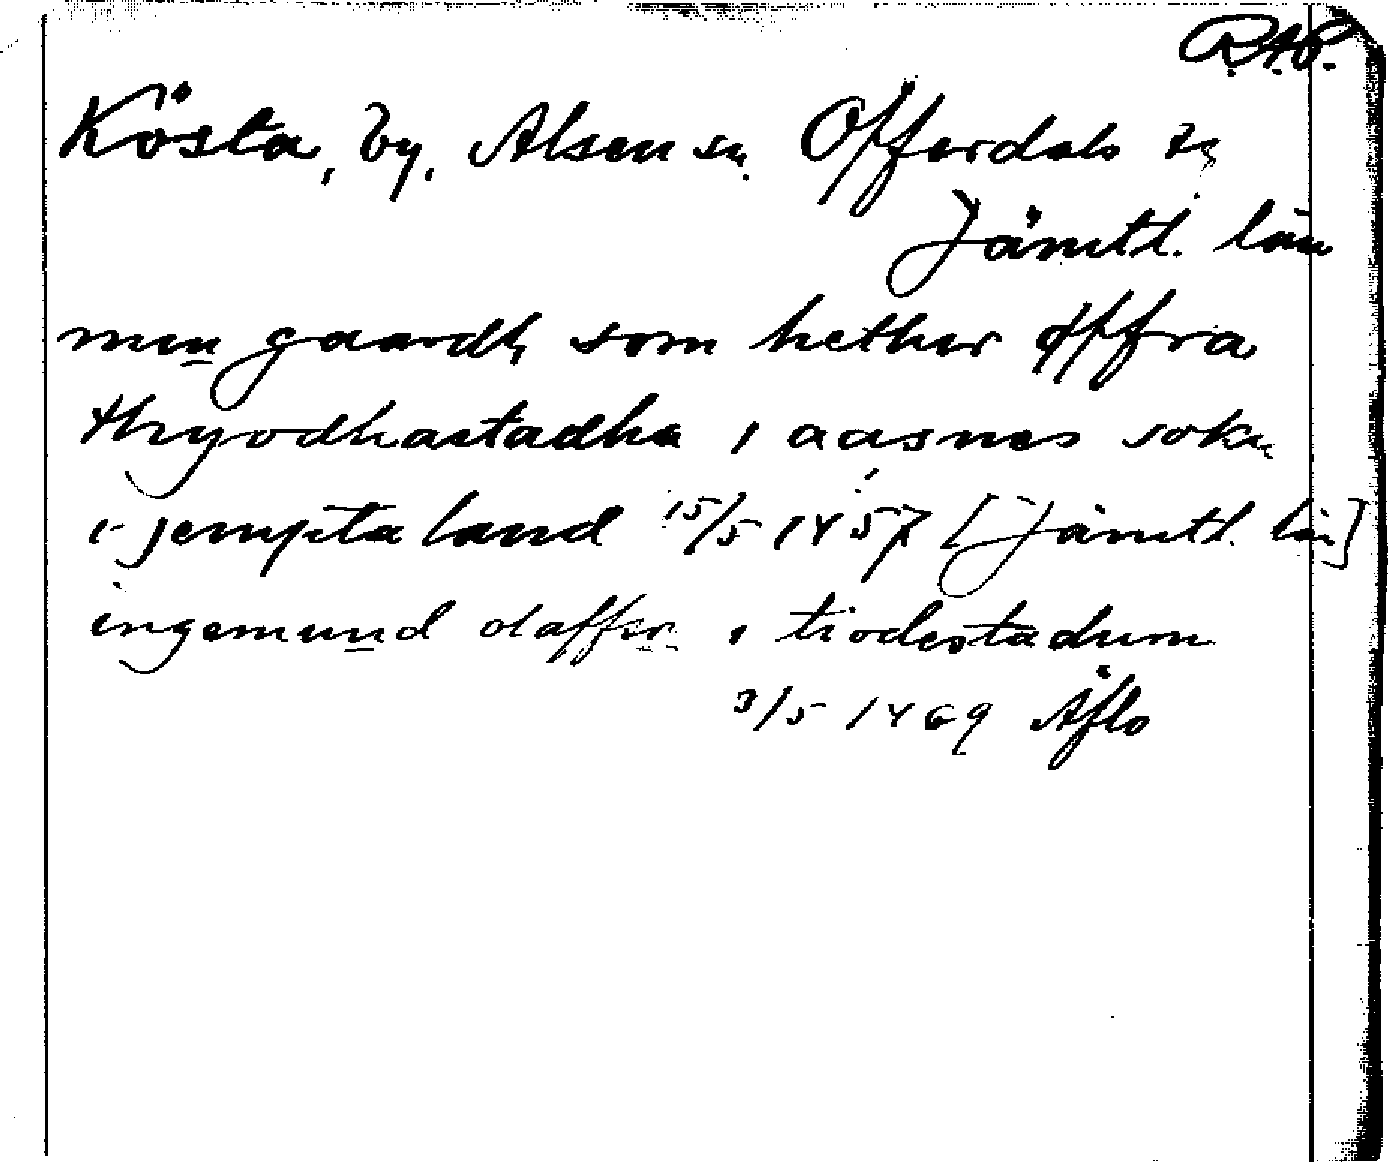 R.A.P.
Kösta, by, Alsen sn. Offerdals tg
Jämtl. län
men gaardh som hether öffra
thryodhastadha i aasnes sokn
i jemptaland 15/5 1457 [Jämtl. län]
ingemund olaffsn i tiodestadum
3/5 1469 Åflo